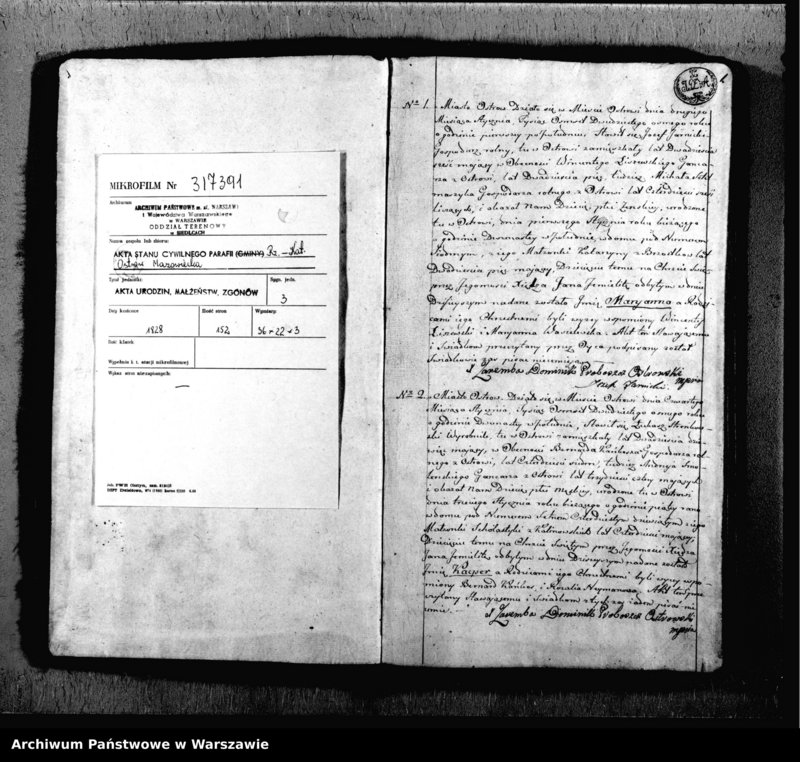 MIKROFILM Nr 317391
Archiwum
ARCHIWUM PAŃSTWOWE m. st. WARSZAWY
i Województwa Warszawskiego
w WARSZAWIE
ODDZIAŁ TERENOWY
w SIEDLCACH
Nazwa zespołu lub zbioru:
AKTA STANU CYWILNEGO PARAFII (GMINY) Rz.-Kat.
Ostrów Mazowiecka
Tytuł jednostki:
AKTA URODZIN, MAŁŻEŃSTW, ZGONÓW
Sygn. jedn.
3
Daty końcowe
1828
Ilość stron
152
Wymiary:
36 × 22 × 3
Ilość klatek
Wypełnia k. t. stacji mikrofilmowej
Wykaz stron niezapisanych:
—
1
Nro 1. Miasto Ostrow. Działo się w Mieście Ostrowi dnia drugiego
Miesiąca Stycznia, Tysiąc Osmset Dwudziestego osmego roku
o godzinie pierwszey popołudniu, Stawił się Jozef
Gospodarz rolny, tu w Ostrowi zamieszkały lat Dwadzieścia
sześć maiący w Obecności Wincentego Liszewskiego
z Ostrowi, lat Dwadzieścia pięć, tudzież Michała
Gospodarza rolnego z Ostrowi lat Czterdzieści
liczących, i okazał Nam Dziecię płci Żenskiey, urodzone
tu w Ostrowi, dnia pierwszego Stycznia roku bieżącego
o godzinie Dwunastey w południe, w domu pod Numerem
Siodmym, z iego Małżonki Katarzyny z lat
Dwadzieścia pięć maiącey. Dziecięciu temu na Chrzcie Świętym
przez Jegomości Xiędza Jana odbytym w dniu
Dzisieyszym nadane zostało Imię Maryanna a Rodzi-
cami iego Chrzestnemi byli wyżey wspomniony Wincenty
Liszewski i Maryanna Akt ten Stawaiącemu
i Świadkom przeczytany przez Oyca podpisany został
Świadkowie zaś pisać nieumieią.
X Zaremba Dominik Proboszcz Ostrowski
mpria
Nro 2. Miasto Ostrow. Działo się w Mieście Ostrowi dnia Czwartego
Miesiąca Stycznia, Tysiąc Osmset Dwudziestego osmego roku
o godzinie Dwunastey w południe, Stawił się Łukasz
Wyrobnik, tu w Ostrowi zamieszkały lat Dwadzieścia dzie-
więć maiący, w Obecności Bernarda Gospodarza rol-
nego z Ostrowi, lat Czterdzieści siedm, tudzież
z Ostrowi lat trzydzieści cztery maiących
i okazał Nam Dziecię płci Męzkiey, urodzone tu w Ostrowi
dnia trzeciego Stycznia roku bieżącego o godzinie piątey rano
w domu pod Numerem Setnem Czterdziestym dziewiątym z iego
Małżonki Scholastyki z lat Czterdzieści maiącey,
Dziecięciu temu na Chrzcie Świętym przez Jegomości Xiędza
Jana odbytym w dniu Dzisieyszym nadane zostało
Imię Kacper a Rodzicami iego Chrzestnemi byli wyżey wspo-
mniony Bernard i Rozalia Akt ten prze-
czytany Stawaiącemu i Świadkom
X Zaremba Dominik Proboszcz Ostrowski
mpria
Archiwum Państwowe w Warszawie